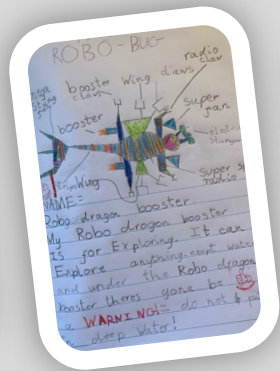 ROBO-BUG
radio
claw
booster
claws
wing
claws
mega
sting
super
fan
booster
electric
super
radio
Wing
NAME=
Robo dragon booster
My Robo dragon booster
is for Exploring. It can
Explore anything, exept water
and under the Robo dragon
booster theres gona be
a WARNING!= do not put
in deep water!